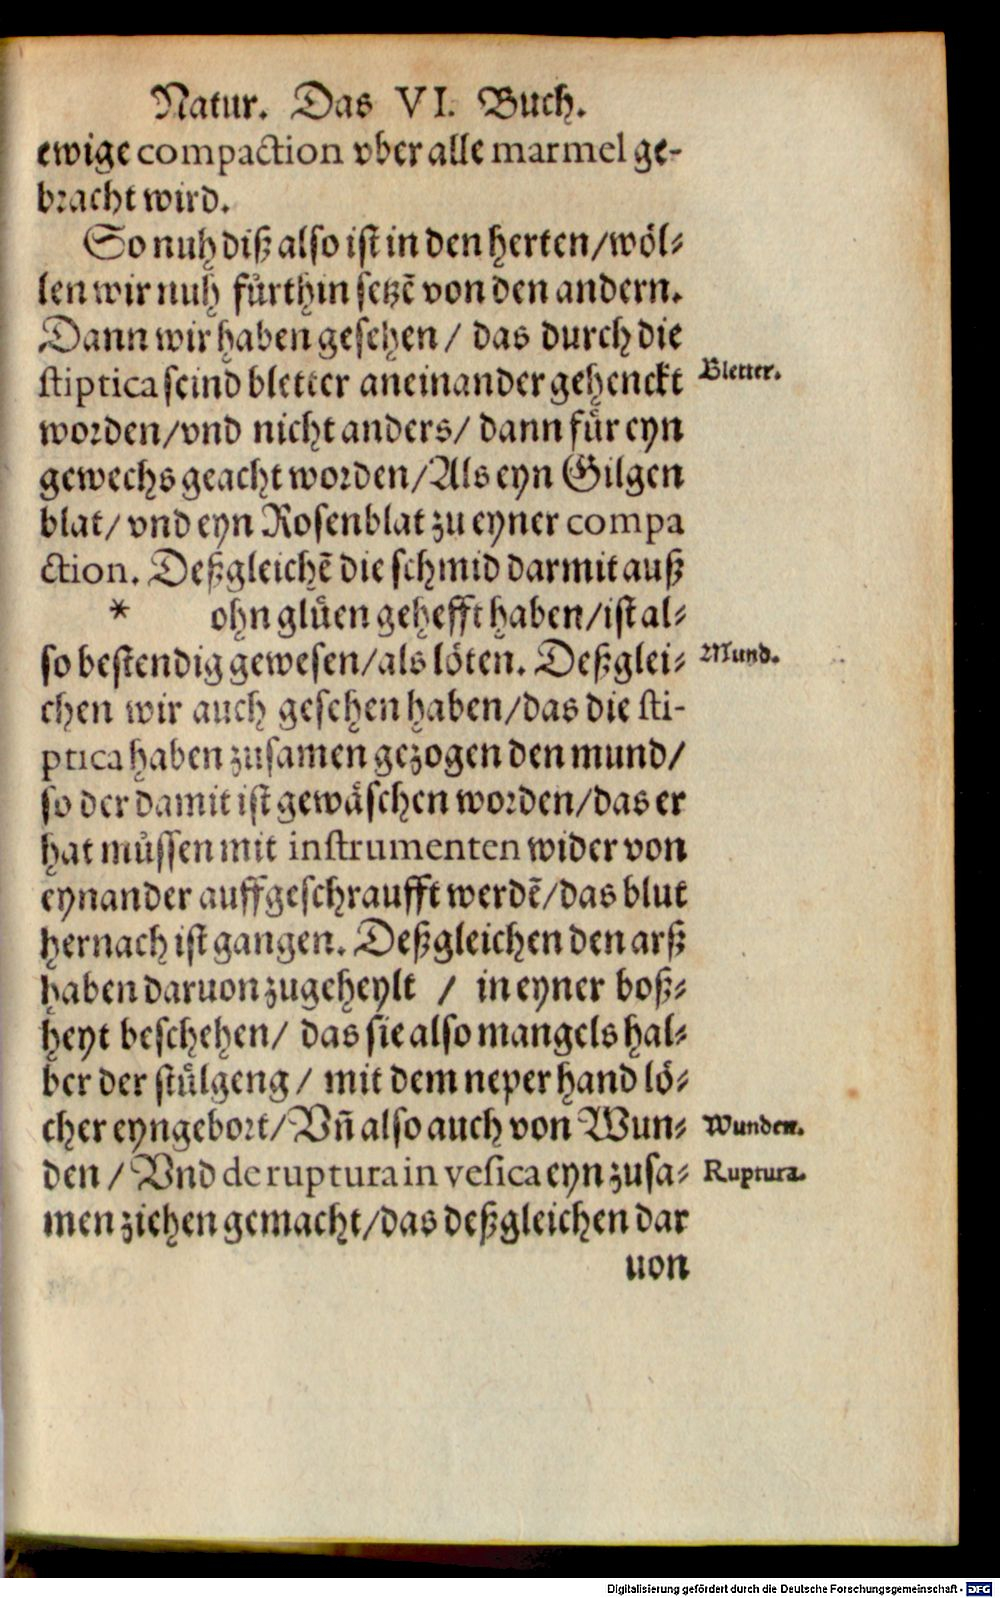 Natur. Das VI. Buch.
ewige compaction vber alle marmel ge-
bracht wird.
So nuh diß also ist in den herten/wöl-
len wir nuh fürthin setzē von den andern.
Dann wir haben gesehen / das durch die
stiptica seind bletter aneinander gehenckt
Bletter.
worden/vnd nicht anders/ dann für eyn
gewechs geacht worden/Als eyn Gilgen
blat/ vnd eyn Rosenblat zu eyner compa
ction. Deßgleichē die schmid darmit auß
* ohn glüen gehefft haben/ist al-
so bestendig gewesen/als löten. Deßglei-
Mund.
chen wir auch gesehen haben/das die sti-
ptica haben zusamen gezogen den mund/
so der damit ist gewäschen worden/das er
hat müssen mit instrumenten wider von
eynander auffgeschraufft werdē/das blut
hernach ist gangen. Deßgleichen den arß
haben daruon zugeheylt / in eyner boß-
heyt beschehen/ das sie also mangels hal-
ber der stülgeng / mit dem neper hand lö-
cher eyngebort/Vñ also auch von Wun-
Wunden.
den / Vnd de ruptura in vesica eyn zusa-
Ruptura.
men ziehen gemacht/das deßgleichen dar
uon
Digitalisierung gefördert durch die Deutsche Forschungsgemeinschaft - DFG